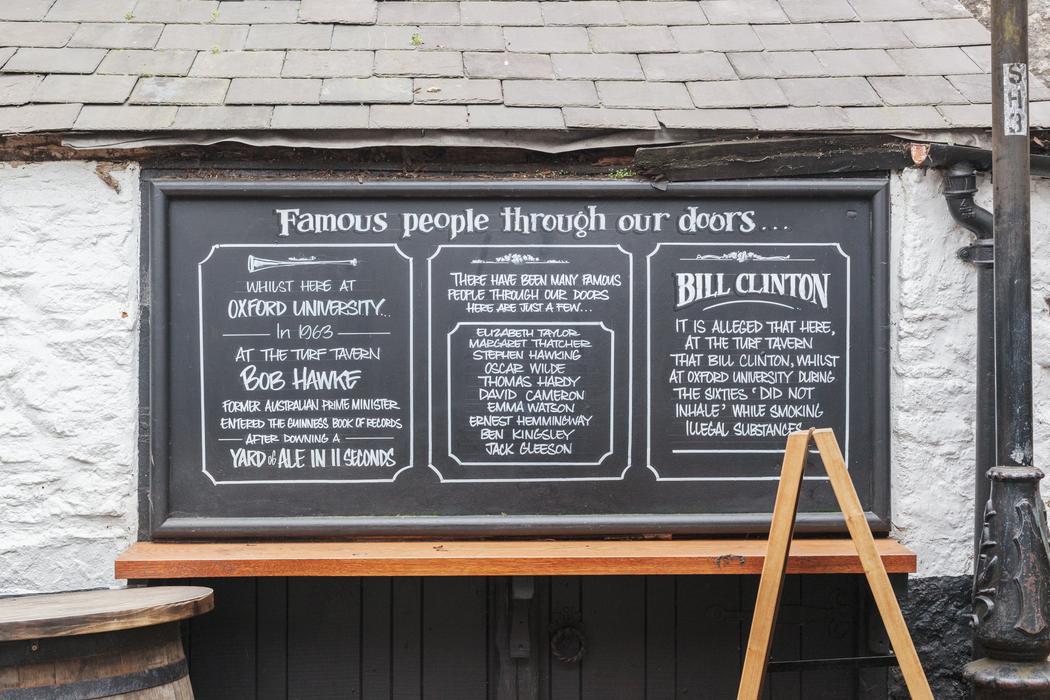 Famous people through our doors...
WHILST HERE AT
OXFORD UNIVERSITY...
In 1963
AT THE TURF TAVERN
BOB HAWKE
FORMER AUSTRALIAN PRIME MINISTER
ENTERED THE GUINNESS BOOK OF RECORDS
AFTER DOWNING A
YARD of ALE IN 11 SECONDS
THERE HAVE BEEN MANY FAMOUS
PEOPLE THROUGH OUR DOORS
HERE ARE JUST A FEW...
ELIZABETH TAYLOR
MARGARET THATCHER
STEPHEN HAWKING
OSCAR WILDE
THOMAS HARDY
DAVID CAMERON
EMMA WATSON
ERNEST HEMMINGWAY
BEN KINGSLEY
JACK GLEESON
BILL CLINTON
IT IS ALLEGED THAT HERE,
AT THE TURF TAVERN
THAT BILL CLINTON, WHILST
AT OXFORD UNIVERSITY DURING
THE SIXTIES 'DID NOT
INHALE' WHILE SMOKING
ILLEGAL SUBSTANCES
SH3